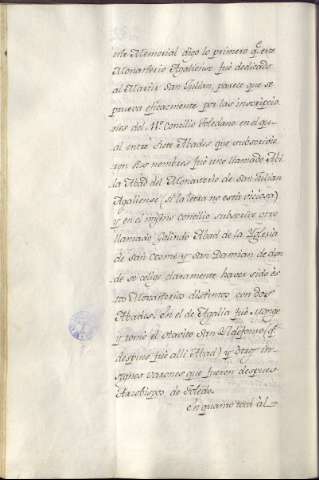 este Memorial digo lo primero q.e este
Monasterio Agaliense fué dedicado
al Martir San Julián, parece que se
prueva eficacmente por las inscripcio
nes del Concilio Toledano en el qu
al entre siete Abades que subscrivie
ron sus nombres fué uno llamado Abi
la Abad del Monasterio de San Julian
Agaliense (si la letra no está viciosa)
y en el mismo concilio subscrive otro
llamado Galindo Abad de la Iglesia
de San Cosme y San Damian de don
de se colige claramente haver sido és
tos Monasterios distintos con dos
Abades. En el de Agalia fué Monge
y tomó el havito San Ildefonso (q.e
despues fué alli Abad) y otros in
signes varones que fueron despues
Arzobispos de Toledo.
En quanto toca al